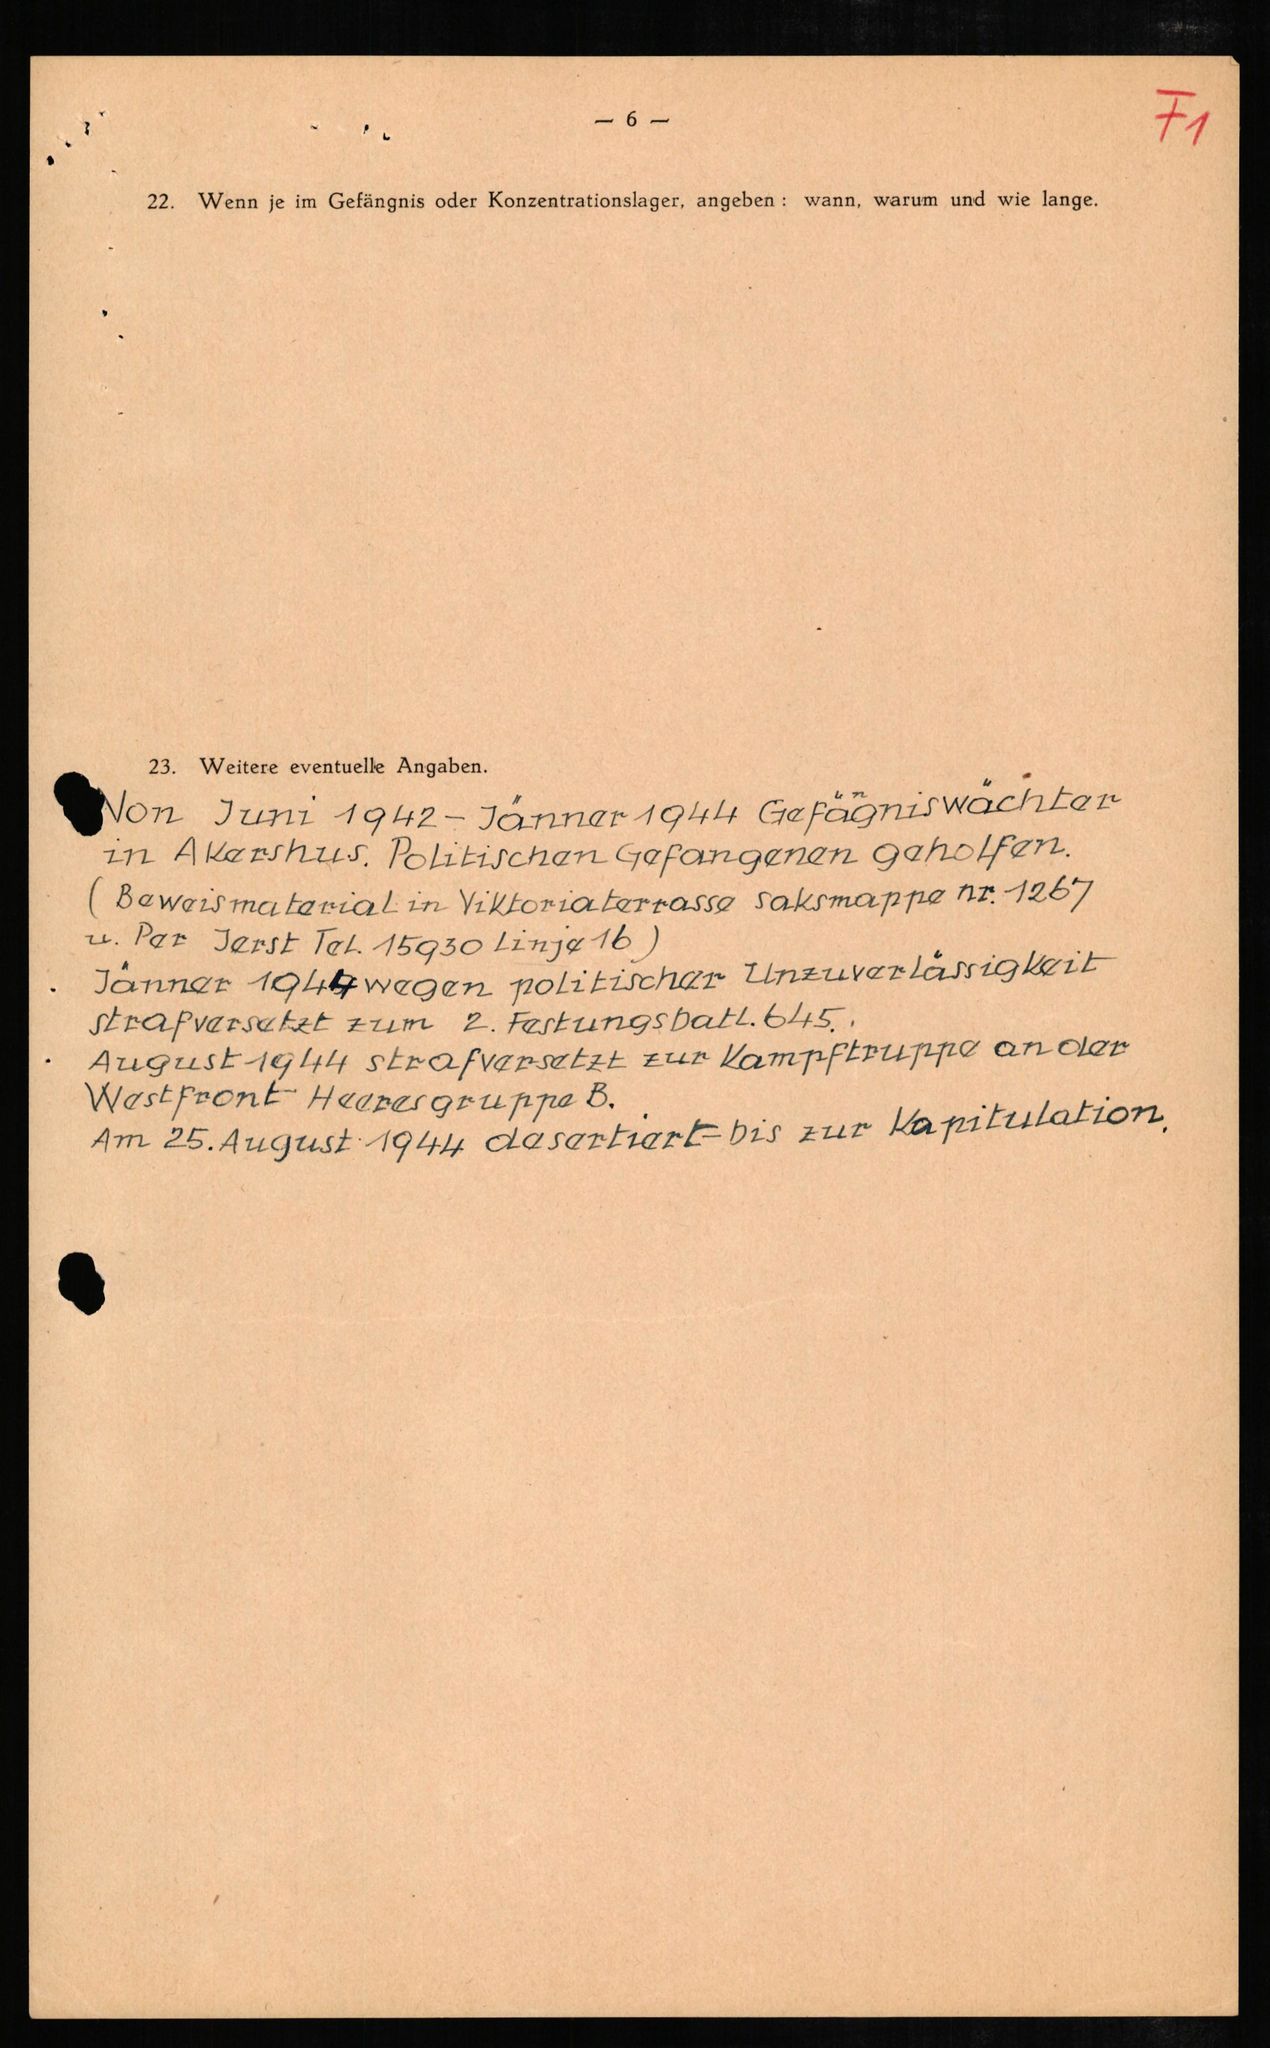 — 6 —
F1
22. Wenn je im Gefängnis oder Konzentrationslager, angeben: wann, warum und wie lange.
23. Weitere eventuelle Angaben.
Von Juni 1942 - Jänner 1944 Gefängniswächter
in Akershus. Politischen Gefangenen geholfen.
(Beweismaterial in Viktoriaterrasse saksmappe nr. 1267
u. Per Jerst Tel. 15930 Linje 16)
Jänner 1944 wegen politischer Unzuverlässigkeit
strafversetzt zum 2. Festungsbatl. 645.
August 1944 strafversetzt zur Kampftruppe an der
Westfront Heeresgruppe B.
Am 25. August 1944 desertiert = bis zur Kapitulation.